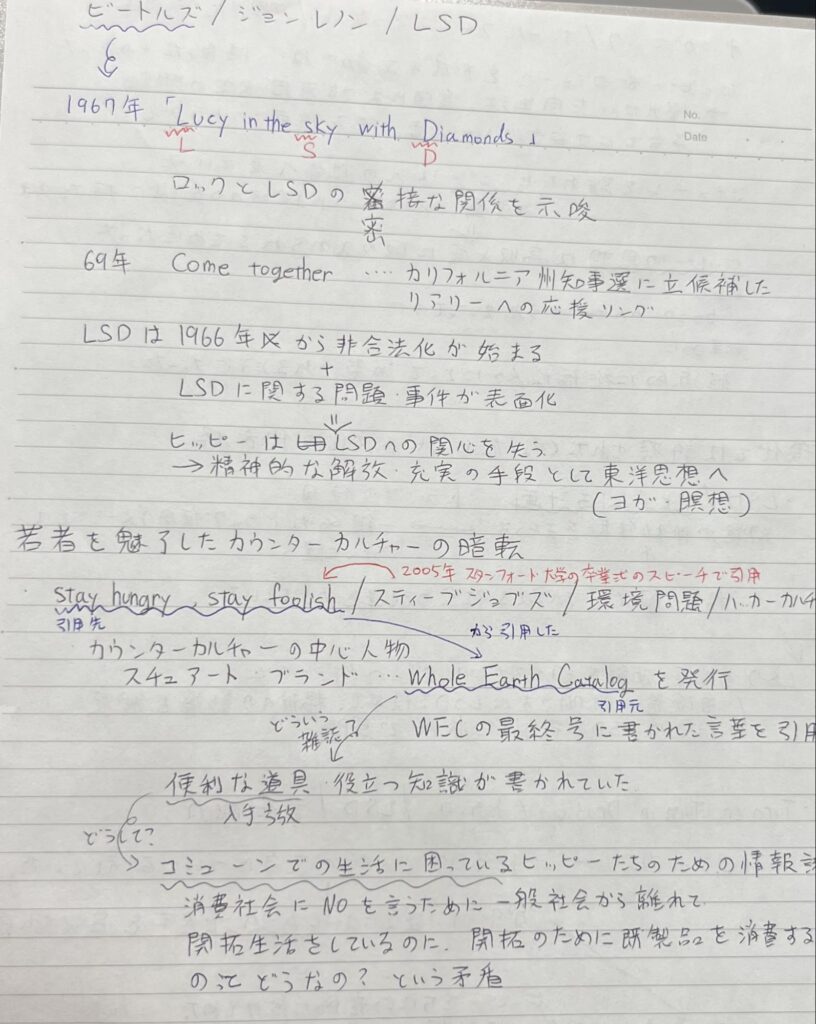 ビートルズ / ジョンレノン / LSD
No.
Date
1967年 「Lucy in the sky with Diamonds」
L S D
ロックとLSDの 接な関係を示唆
密
69年 Come together ‥‥ カリフォルニア州知事選に立候補した
リアリーへの応援ソング
LSDは1966年から非合法化が始まる
+
LSDに関する問題・事件が表面化
ヒッピーは LSDへの関心を失う
→精神的な解放・充実の手段として東洋思想へ
(ヨガ・瞑想)
若者を魅了したカウンターカルチャーの暗転
2005年 スタンフォード大学の卒業式のスピーチで引用
stay hungry、stay foolish / スティーブジョブズ / 環境問題 / ハッカーカルチ
引用先
から引用した
カウンターカルチャーの中心人物
スチュアート・ブランド … Whole Earth Catalog を発行
引用元
どういう
雑誌?
WECの最終号に書かれた言葉を引用
便利な道具・役立つ知識が書かれていた
入手
どうして?
コミューンでの生活に困っているヒッピーたちのための情報誌
消費社会にNOを言うために一般社会から離れて
開拓生活をしているのに、開拓のために既製品を消費する
のってどうなの? という矛盾